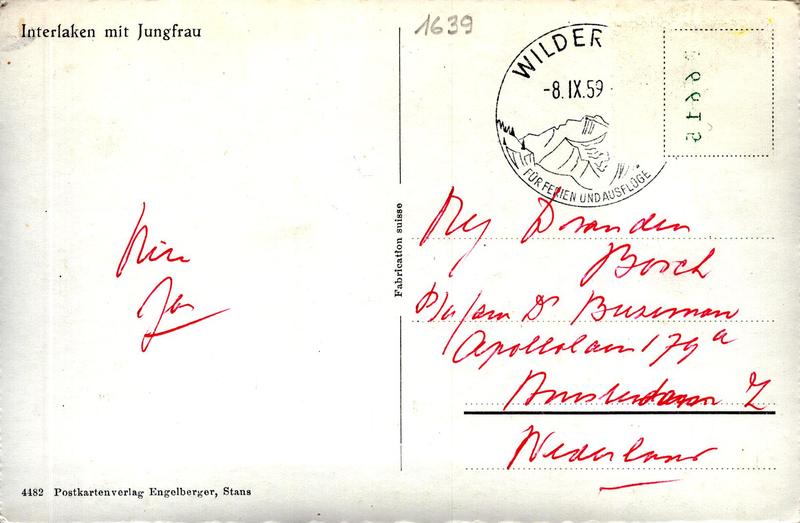 Interlaken mit Jungfrau
1639
WILDER
-8.IX.59
FÜR FERIEN UND AUSFLÜGE
Fabrication suisse
Bosch
Dr Buzeman
Apollolaan 179 a
Amsterdam Z
Nederland
4482 Postkartenverlag Engelberger, Stans